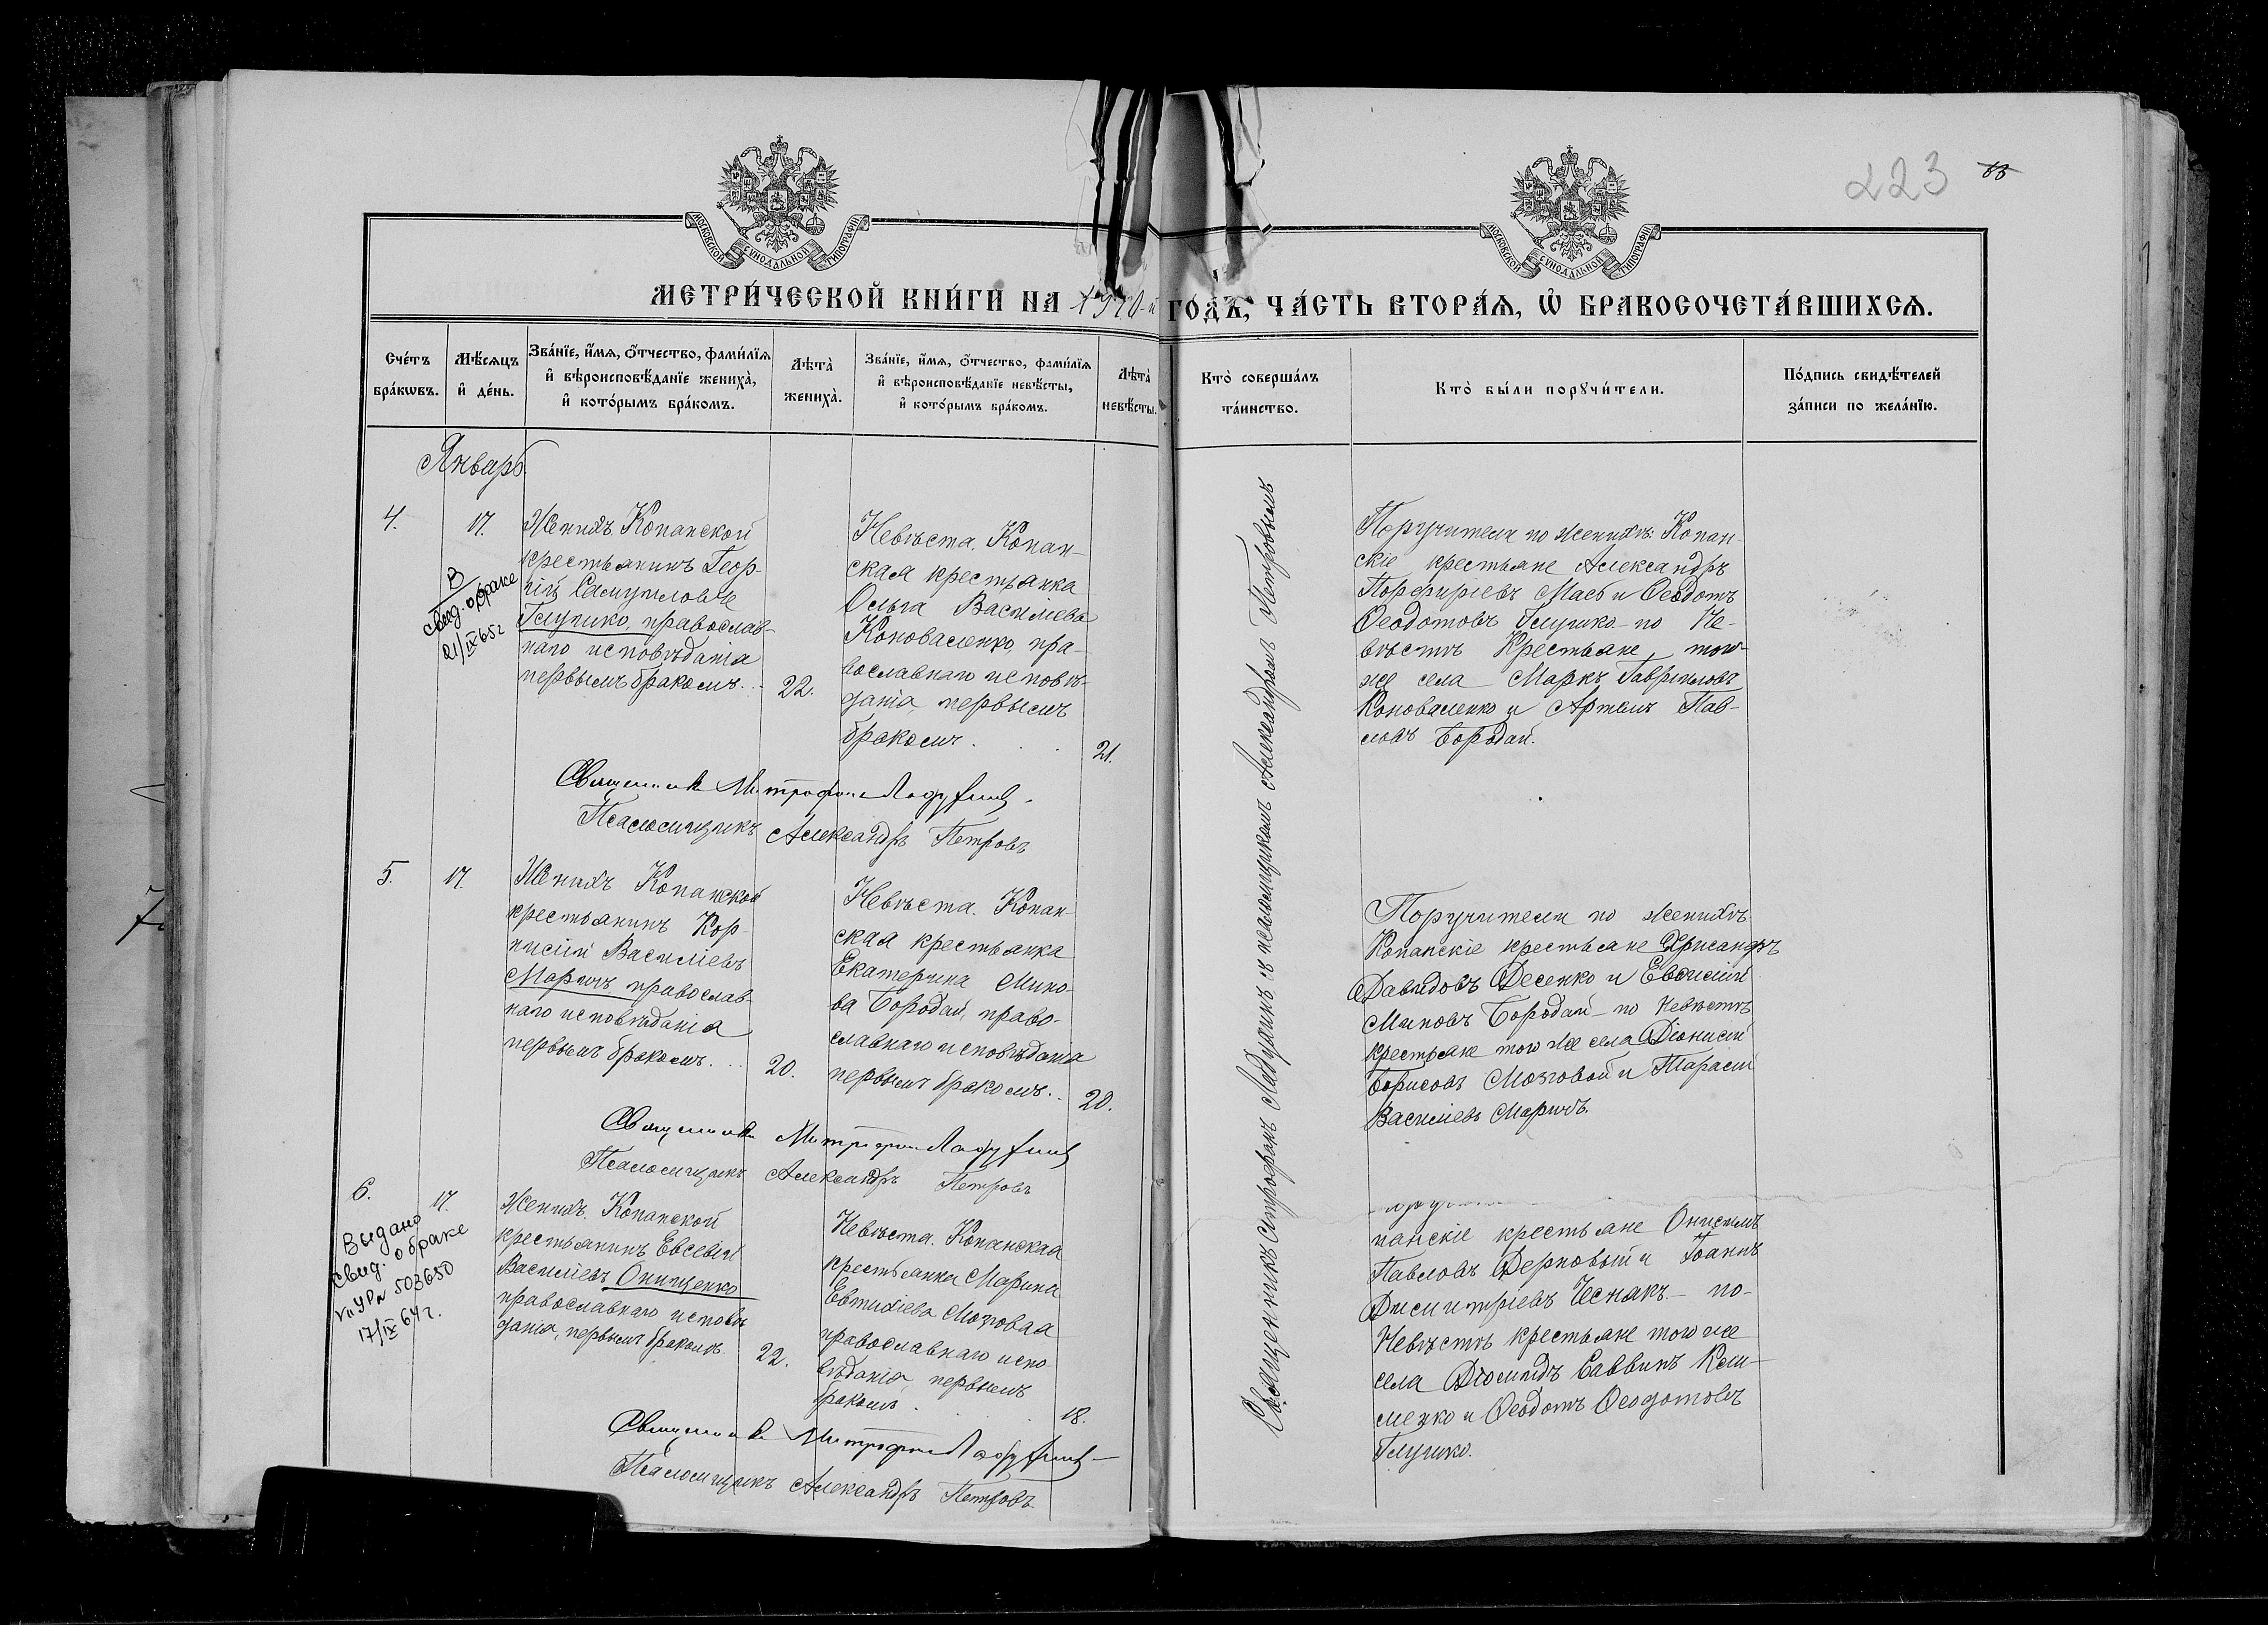 223 83
МОСКОВСКОЙ СУНОДАЛЬНОЙ ТИПОГРАФІИ
МОСКОВСКОЙ СУНОДАЛЬНОЙ ТИПОГРАФІИ
МЕТРИ́ЧЕСКОЙ КНИ́ГИ НА 1910-й ГО́ДЪ, ЧА́СТЬ ВТОРА́Ѧ, Ѡ҆ БРАКОСОЧЕТА́ВШИХСѦ.
Сче́тъ
бра́кѡвъ.
Мѣ́сѧцъ
и҆ де́нь.
Зва́нїе, и҆́мѧ, ѻ҆́тчество, фами́лїѧ
и҆ вѣроисповѣ́данїе жениха̀,
и҆ кото́рымъ бра́комъ.
Лѣта̀
жениха̀.
Зва́нїе, и҆́мѧ, ѻ҆́тчество, фами́лїѧ
и҆ вѣроисповѣ́данїе невѣ́сты,
и҆ кото́рымъ бра́комъ.
Лѣта̀
невѣ́сты.
Кто̀ соверша́лъ
та́инство.
Кто̀ бы́ли порꙋчи́тели.
По́дпись свидѣ́телей
за́писи по жела́нїю.
Январь
4.
17.
В
свид. о браке
21/IX 65г
Женихъ. Копанской
крестьянинъ Геор-
гій Самуиловъ
Глушко, православ-
наго исповѣданія
первымъ бракомъ...
22.
Невѣста. Копан-
ская крестьянка
Ольга Василіева
Коноваленко, пра-
вославнаго исповѣ-
данія, первымъ
бракомъ.
21.
Поручители по женихѣ: Копан-
скіе крестьяне Александръ
Порфиріевъ Масъ и Ѳеодотъ
Ѳеодотовъ Глушко - по Не-
вѣстѣ Крестьяне, того-
же села Маркъ Гавриловъ
Коноваленко и Артемъ Пав-
ловъ Бородай.
Священникъ Митрофанъ Ладухинъ
Псаломщикъ Александръ Петровъ
5.
17.
Женихъ Копанской
крестьянинъ Кор-
нилій Василіевъ
Маричъ православ-
наго исповѣданія
первымъ бракомъ...
20.
Невѣста. Копан-
ская крестьянка
Екатерина Мино-
ва Бородай, право-
славнаго исповѣданія
первымъ бракомъ..
20.
Поручители по женихѣ
Копанскіе крестьяне Хрисанфъ
Давидовъ Десенко и Евѳимій
Миновъ Бородай - по невѣстѣ
крестьяне того же села Діонисій
Борисовъ Мозговой и Тарасій
Василіевъ Маричъ.
Священникъ Митрофанъ Ладухинъ
Псаломщикъ Александръ Петровъ
6.
17.
Выдано
свид. о браке
УР № 503650
17/IX 64г.
Женихъ. Копанской
крестьянинъ Евсевій
Василіевъ Онищенко
православнаго исповѣ
данія, первымъ бракомъ.
22.
Невѣста. Копанская
крестьянка Марина
Евтихіева Мозговая
православнаго испо-
вѣданія, первымъ
бракомъ.
18.
панскіе крестьяне Онисимъ
Павловъ Дерновый и Іоаннъ
Димитріевъ Чеснакъ - по-
Невѣстѣ крестьяне того же
села Діомидъ Саввинъ Кли-
менко и Ѳеодотъ Ѳеодотовъ
Глушко.
Священникъ Митрофанъ Ладухинъ
Псаломщикъ Александръ Петровъ
Священникъ Митрофанъ Ладухинъ съ псаломщикомъ Александромъ Петровымъ